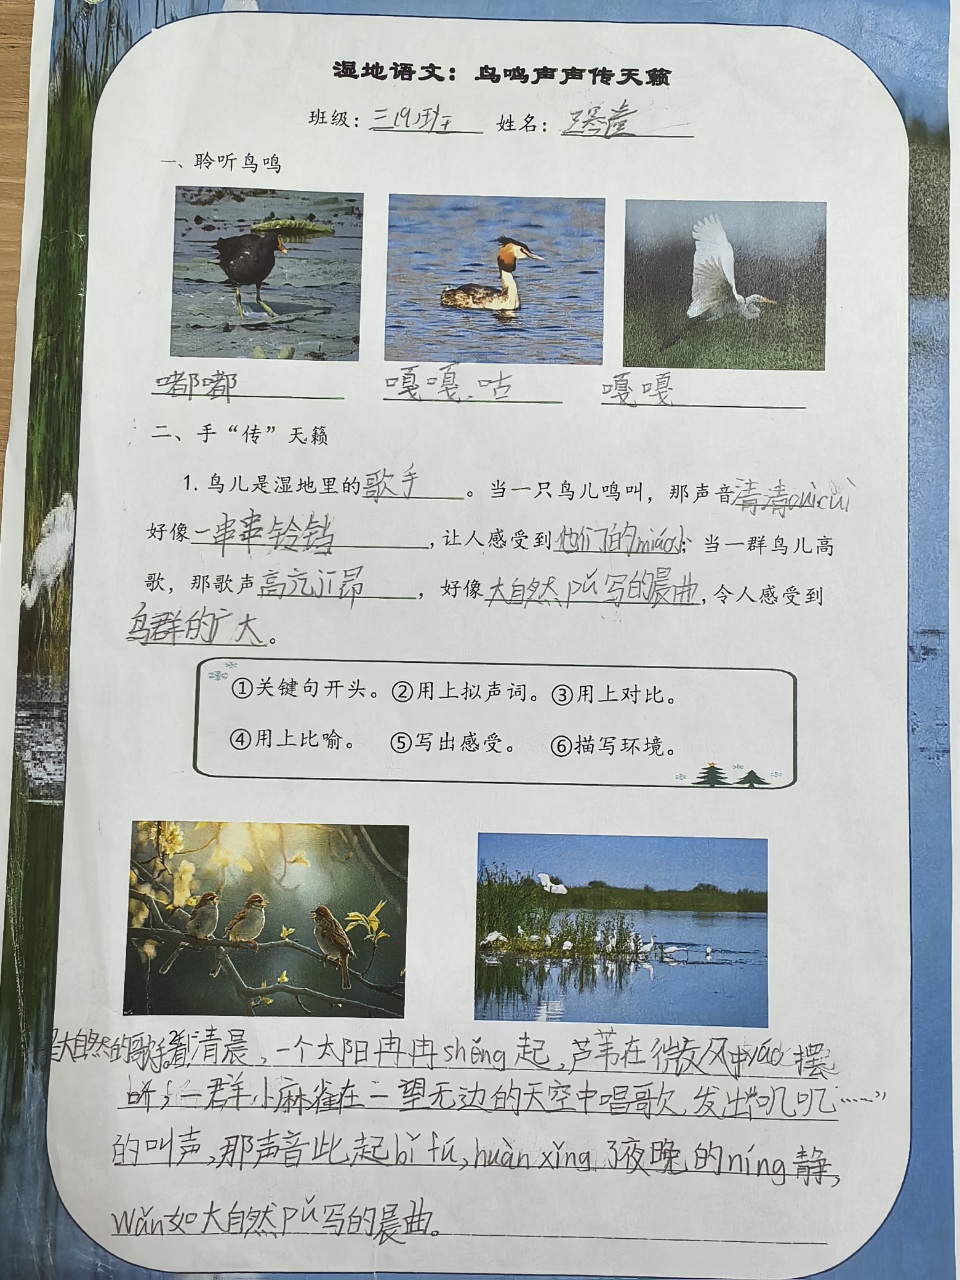 湿地语文：鸟鸣声声传天籁
班级：三(9)班 姓名：
一、聆听鸟鸣
嘟嘟 嘎嘎.咕 嘎嘎
二、手“传”天籁
1. 鸟儿是湿地里的歌手。当一只鸟儿鸣叫，那声音清清cuìcuì
好像一串串铃铛，让人感受到他们的miào；当一群鸟儿高
歌，那歌声高亢，好像大自然pǔ写的晨曲，令人感受到
鸟群的广大。
①关键句开头。②用上拟声词。③用上对比。
④用上比喻。 ⑤写出感受。 ⑥描写环境。
大自然的歌手。清晨，一个太阳冉冉shēng起，芦苇在微风中yáo摆
一群小麻雀在一望无边的天空中唱歌，发出“叽叽……”
的叫声，那声音此起bǐ fú，huàn xǐng了夜晚的níng静，
wǎn如大自然pǔ写的晨曲。